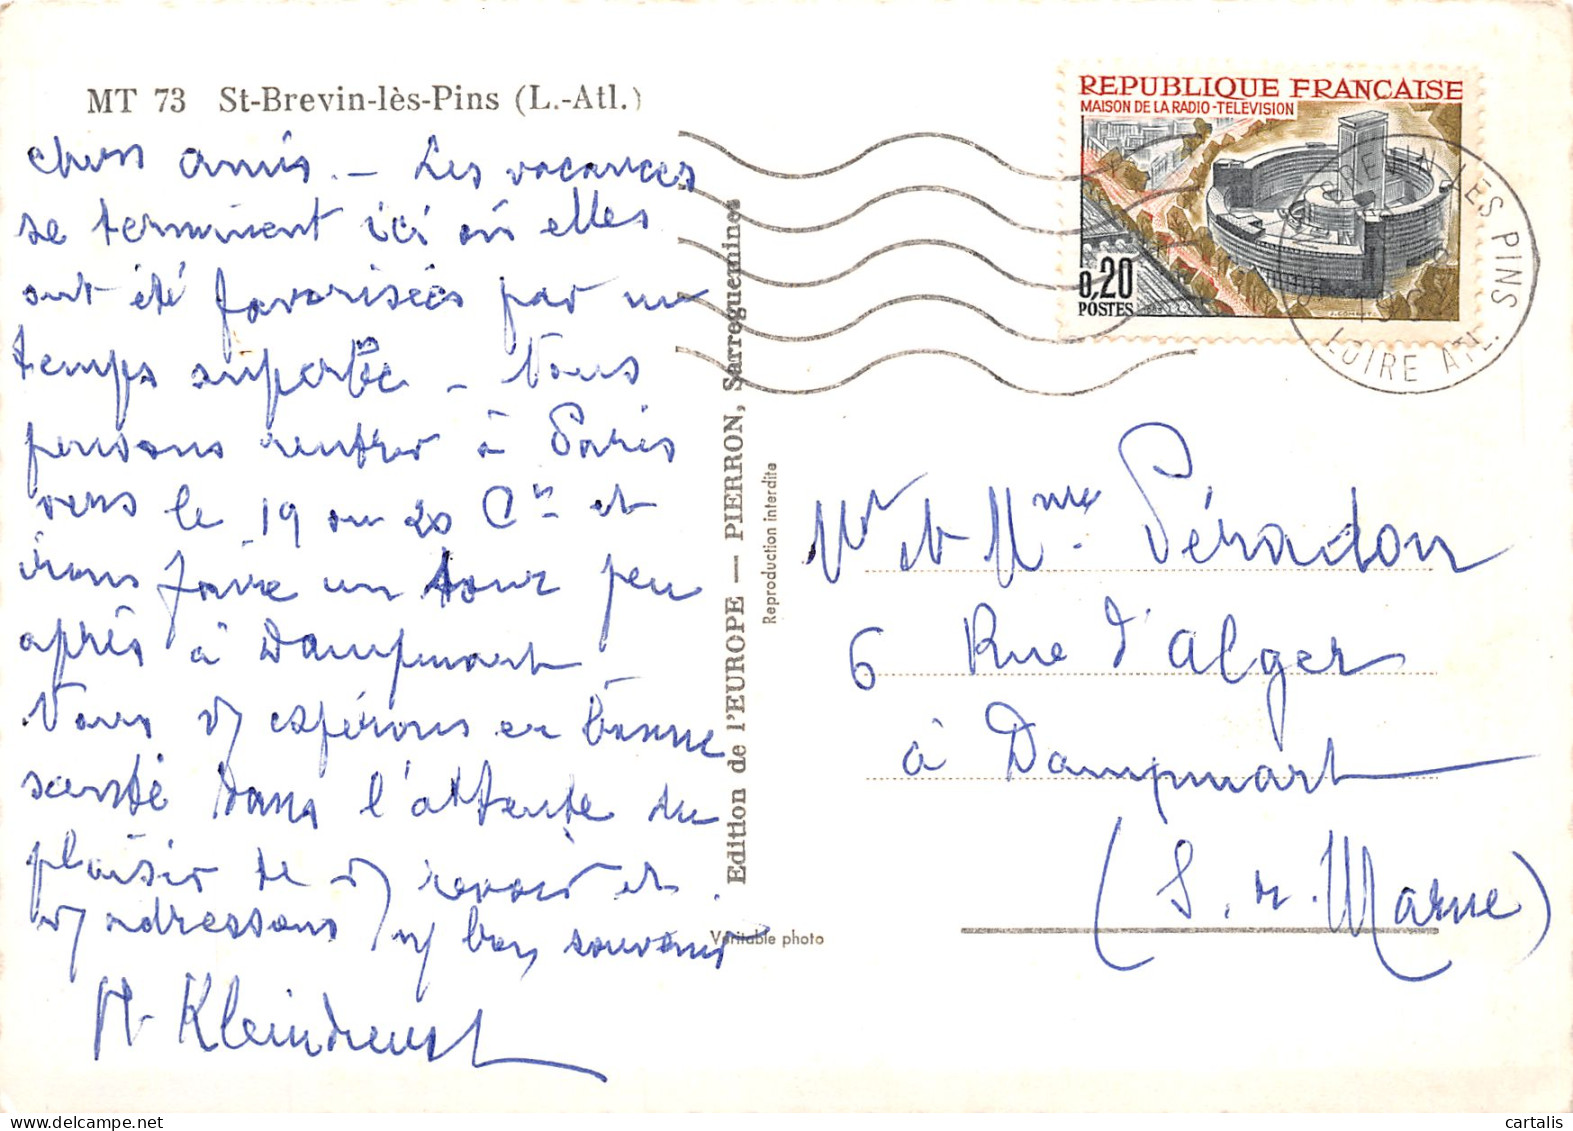 MT 73 St-Brevin-lès-Pins (L.-Atl.)
chers amis. - Les vacances
se terminent ici où elles
ont été favorisées par un
temps superbe - Nous
pensons rentrer à Paris
vers le 19 ou 20 Ct et
irons faire un tour peu
après à Dampmart
Nous vs espérons en bonne
santé dans l'attente du
plaisir de vs revoir et
vs adressons ns bons souvenirs
Kleindienst
Edition de l'EUROPE — PIERRON, Sarreguemines
Reproduction interdite
Véritable photo
REPUBLIQUE FRANÇAISE
MAISON DE LA RADIO-TELEVISION
0,20
POSTES
BREVIN LES PINS
LOIRE ATL.
Mr et Mme Péradon
6 Rue d'Alger
à Dampmart
(S. et Marne)
cartalis